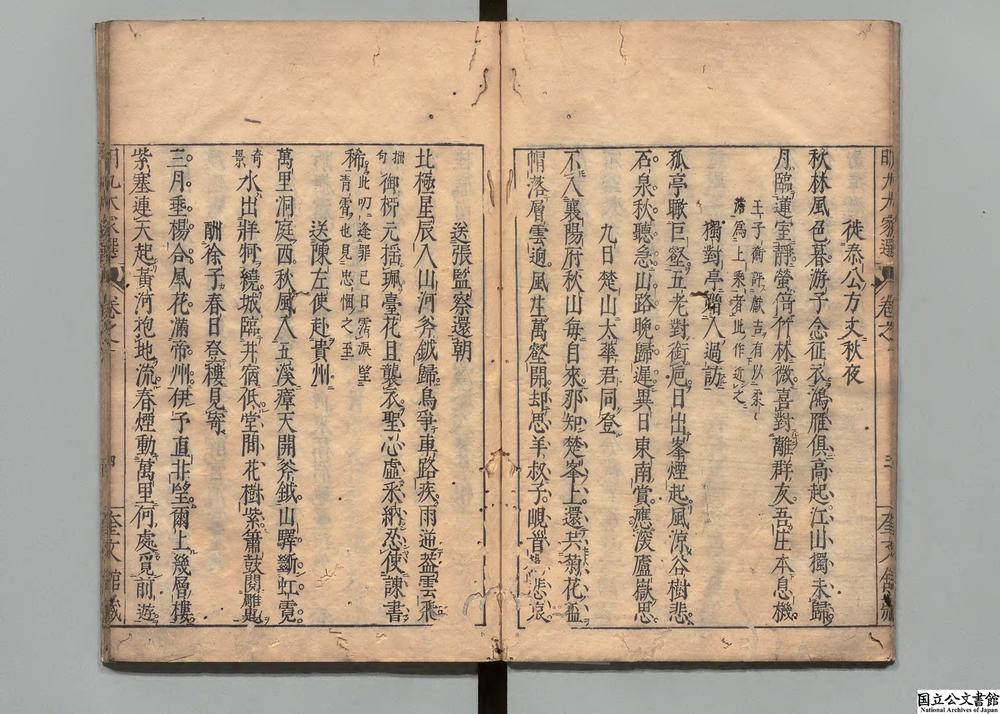 徙泰公方丈秋夜
秋林風色暮游子念征衣鴻雁俱高起江山獨未歸
月臨蓮室靜螢倚竹林微喜對離群友吾生本息機
王子衡評獻吉有以柔
澹為上乘者此作近之
獨對亭贈人過訪
孤亭瞰巨壑五老對銜巵日出峯煙起風涼谷樹悲
石泉秋聽急山路晚歸遲異日東南賞應深廬嶽思
九日楚山太華君同登
不入襄陽府秋山每自來那知楚峯上還共菊花盃
帽落層雲逈風生萬壑開却思羊叔子峴首悲哀
送張監察還朝
北極星辰入山河斧鉞歸鳥爭車路疾雨遞蓋雲飛
拙句
御柳元揺珮臺花且襲衣聖心虛采納忍使諫書
稀
此叨逢罪已日霑淚望
青霄也見忠悃之至
送陳左使赴貴州
萬里洞庭西秋風入五溪瘴天開斧鉞山驛斷虹霓
奇景
水出牂牁繞城臨井宿低堂間花樹紫簫鼓閱雕題
酬徐子春日登樓見寄
三月垂楊合風花滿帝州伊予直非望爾上幾層樓
紫塞連天起黃河抱地流春煙動萬里何處覓前遊
明九大家選
卷之
三
奎文館藏
卷之
四
奎文館藏
国立公文書館
National Archives of Japan